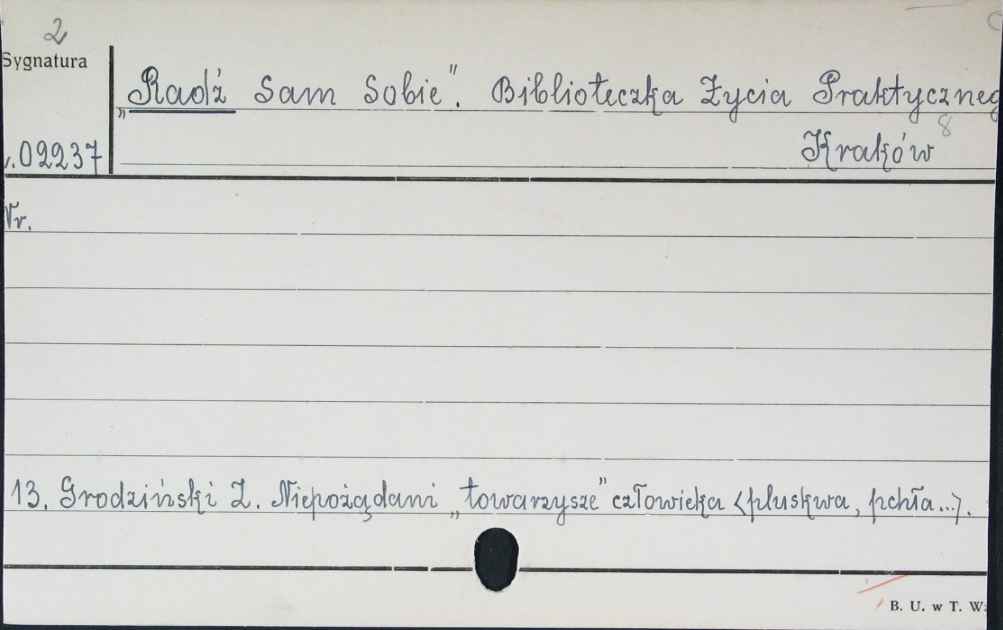 2
Sygnatura
„Radź Sam Sobie". Biblioteczka Życia Praktyczneg
8
.02237
Kraków
Nr.
13. Grodziński Z. Niepożądani „towarzysze" człowieka <pluskwa, pchła...>.
B. U. w T. W